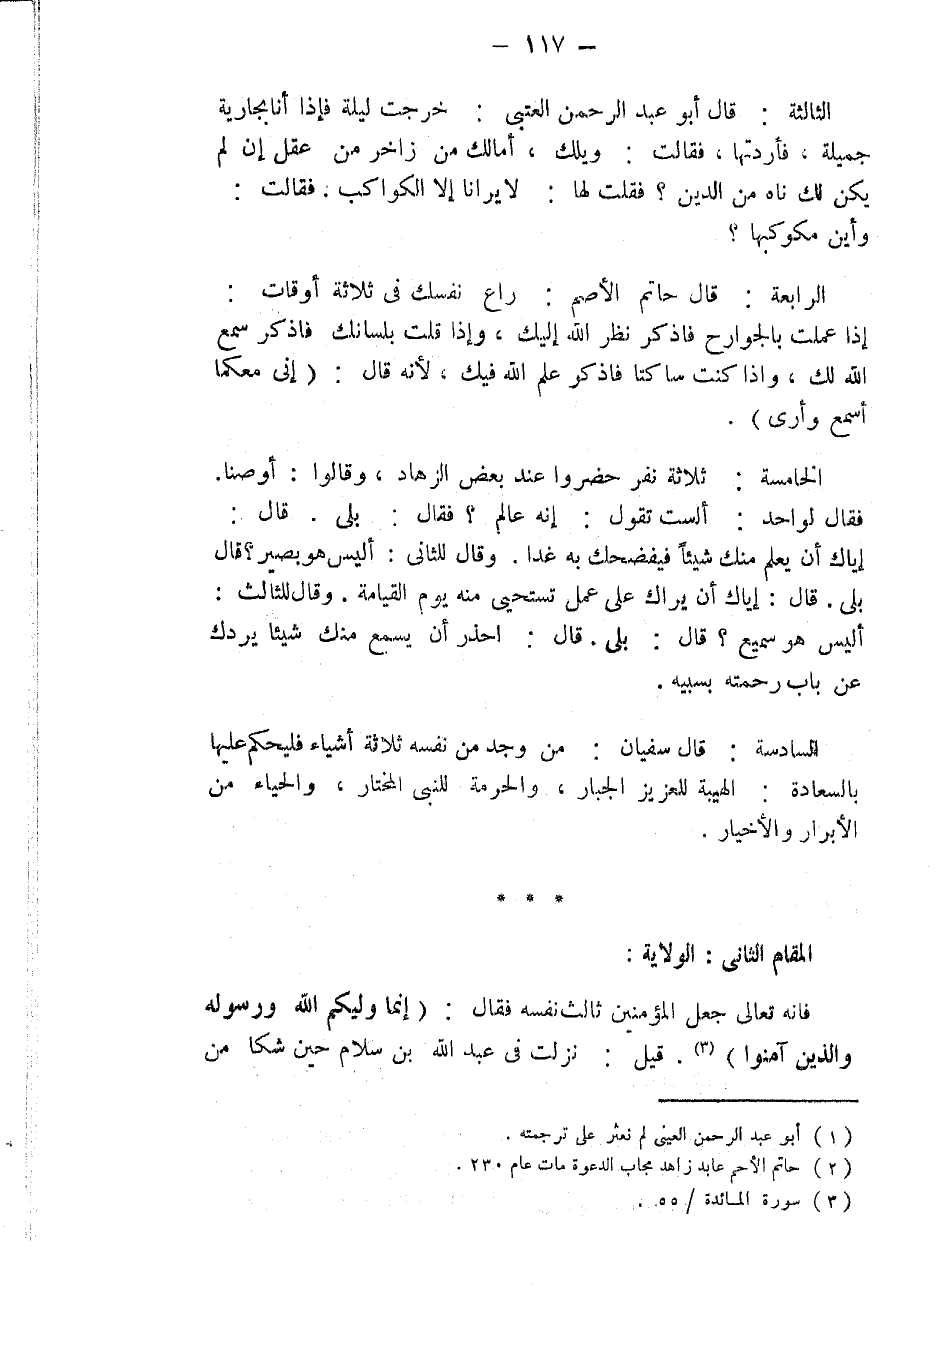 – ١١٧ –
الثالثة : قال أبو عبد الرحمن العتبى : خرجت ليلة فإذا أنا بجارية
جميلة ، فأردتها ، فقالت : ويلك ، أمالك من زاخر من عقل إن لم
يكن لك ناه من الدين ؟ فقلت لها : لا يرانا إلا الكواكب . فقالت :
وأين مكوكبها ؟
الرابعة : قال حاتم الأصم : راع نفسك فى ثلاثة أوقات :
إذا عملت بالجوارح فاذكر نظر الله إليك ، وإذا قلت بلسانك فاذكر سمع
الله لك ، واذا كنت ساكتا فاذكر علم الله فيك ، لأنه قال : ( إنى معكما
أسمع وأرى ) .
الخامسة : ثلاثة نفر حضروا عند بعض الزهاد ، وقالوا : أوصنا.
فقال لواحد : ألست تقول : إنه عالم ؟ فقال : بلى . قال :
إياك أن يعلم منك شيئاً فيفضحك به غدا . وقال للثانى : أليس هو بصير ؟ قال
بلى . قال : إياك أن يراك على عمل تستحيى منه يوم القيامة . وقال للثالث :
أليس هو سميع ؟ قال : بلى . قال : احذر أن يسمع منك شيئا يردك
عن باب رحمته بسبيه .
السادسة : قال سفيان : من وجد من نفسه ثلاثة أشياء فليحكم عليها
بالسعادة : الهيبة للعزيز الجبار ، والحرمة للنبى المختار ، والحياء من
الأبرار والأخيار .
* * *
المقام الثانى : الولاية :
فانه تعالى جعل المؤمنين ثالث نفسه فقال : ( إنما وليكم الله ورسوله
والذين آمنوا ) (٣) . قيل : نزلت فى عبد الله بن سلام حين شكا من
( ١ ) أبو عبد الرحمن العينى لم نعثر على ترجمته .
( ٢ ) حاتم الأحم عابد زاهد مجاب الدعوة مات عام ٢٣٠ .
( ٣ ) سورة المائدة / ٥٥ .